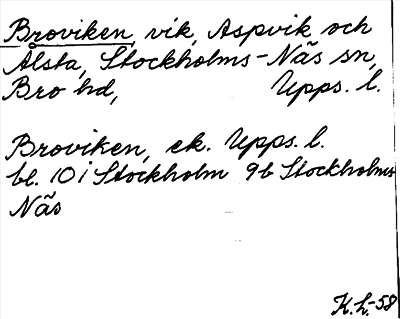 Broviken, vik, Aspvik och
Ålsta, Stockholms-Näs sn,
Bro hd, Upps. l.
Broviken, ek. Upps. l.
bl. 10 i Stockholm 9b Stockholms
Näs
K.L.-58